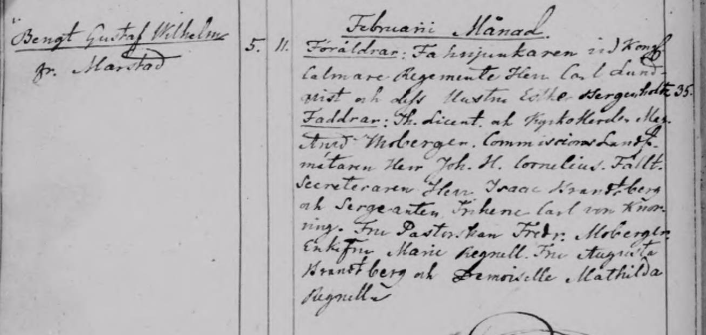 Februarii Månad.
Bengt Gustaf Wilhelm
fr. Marstad
5. 11. Föräldrar: Fahnjunkaren vid Kongl
Calmare Regemente Herr Carl Lund-
qvist och dess Hustru Hergenholtz 35.
Faddrar: Th. Licent. och Kyrkoherden Mag.
Arvid Moberger. Commissions Landt-
mätaren Herr Joh. H. Cornelius. Fält-
Secreteraren Herr Isaac Brandtberg
och Sergeanten Friherre Carl von Knor-
ring. Fru Pastorskan Fredr. Moberger
Enkefru Marie Regnell. Fru Augusta
Brandtberg och Demoiselle Mathilda
Regnell